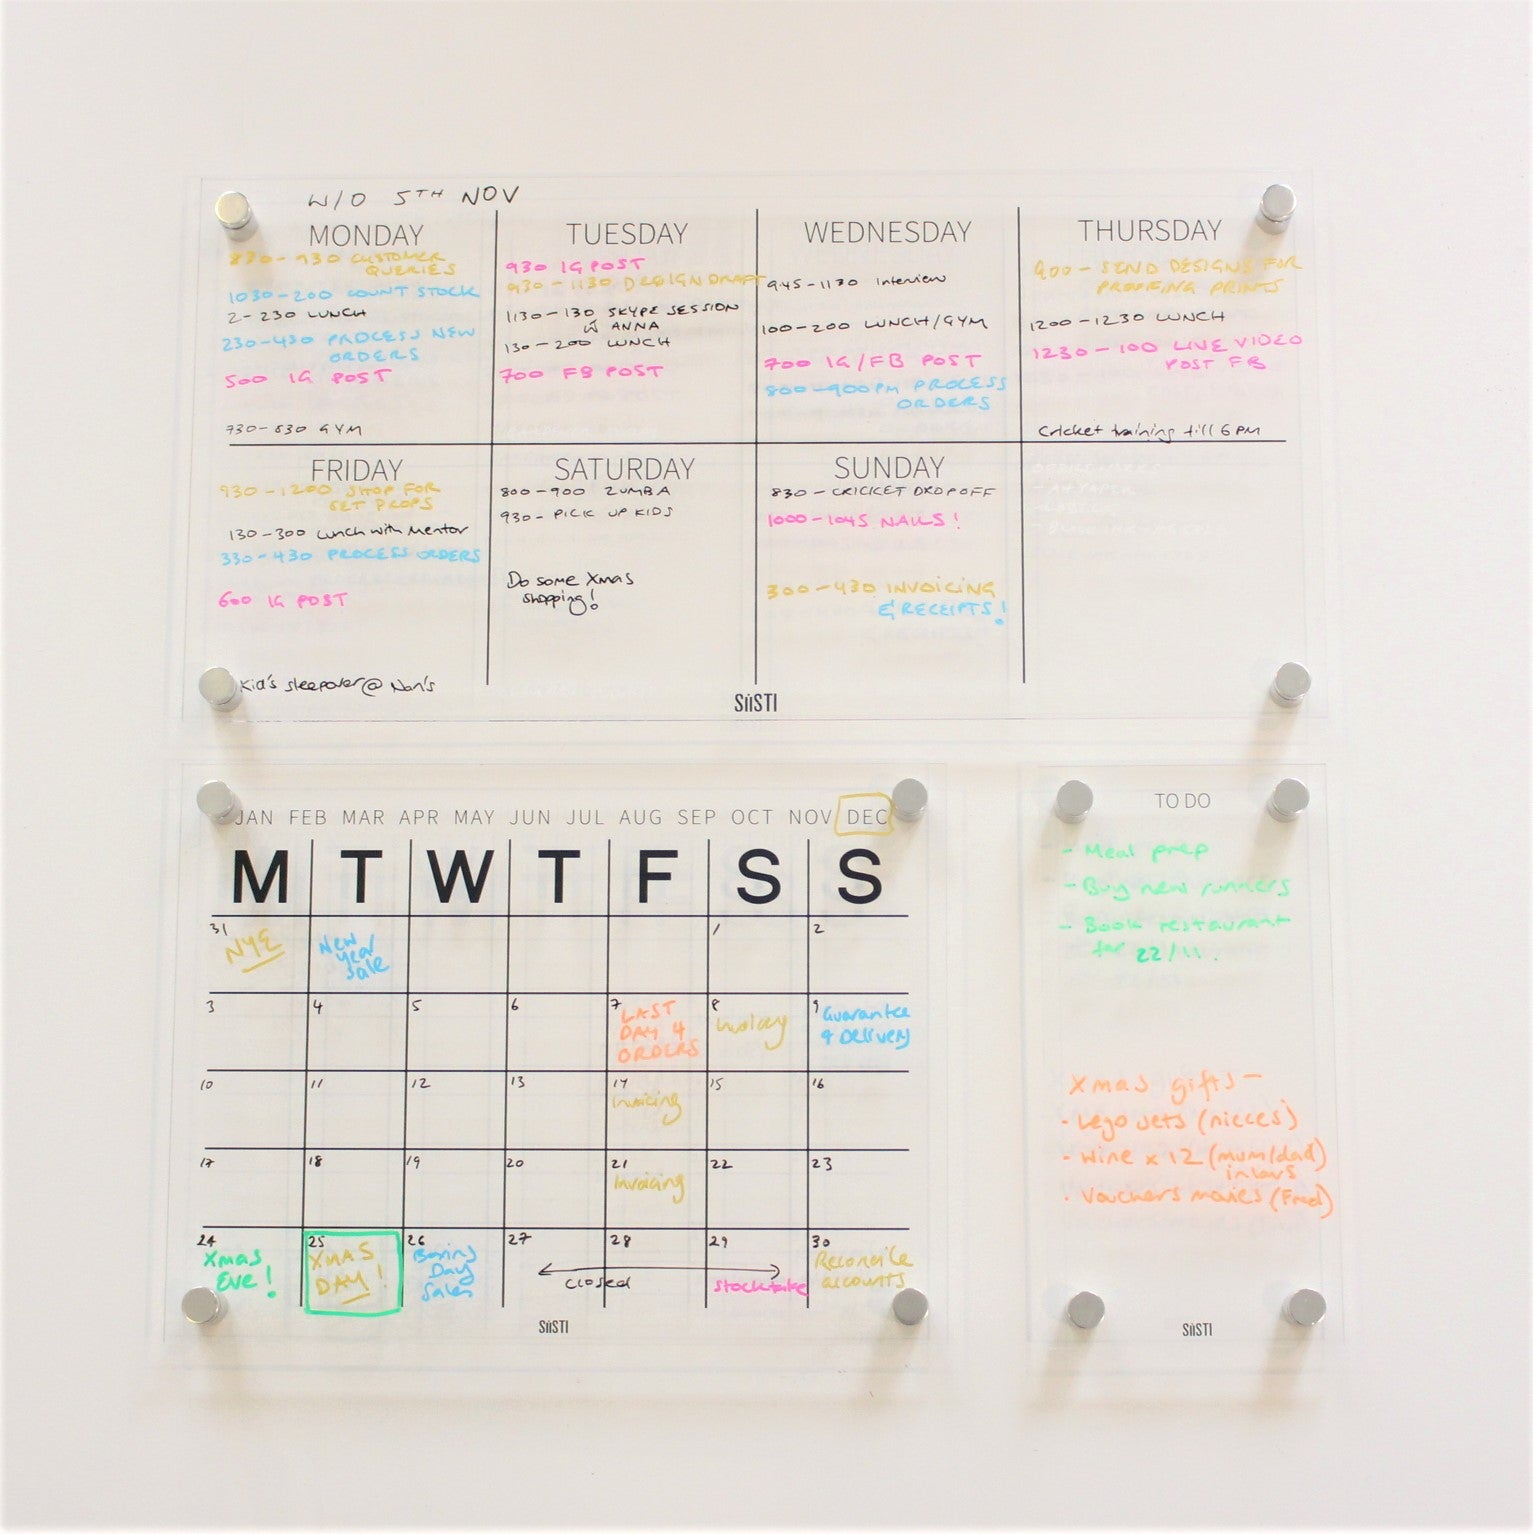 W/O 5TH NOV
MONDAY
830-930 CUSTOMER
QUERIES
1030-200 COUNT STOCK
2-230 LUNCH
230-430 PROCESS NEW
ORDERS
500 IG POST
730-830 GYM
TUESDAY
930 IG POST
930-1130 DESIGN DRAFT
1130-130 SKYPE SESSION
W ANNA
130-200 LUNCH
700 FB POST
WEDNESDAY
945-1130 Interview
100-200 LUNCH/GYM
700 IG/FB POST
800-900PM PROCESS
ORDERS
THURSDAY
900- SEND DESIGNS FOR
PROOFING PRINTS
1200-1230 LUNCH
1230-100 LIVE VIDEO
POST FB
Cricket training till 6PM
FRIDAY
930-1200 SHOP FOR
SET PROPS
130-300 Lunch with Mentor
330-430 PROCESS ORDERS
600 IG POST
Kid's sleepover @ Nan's
SATURDAY
800-900 ZUMBA
930- PICK UP KIDS
Do some Xmas
shopping!
SUNDAY
830- CRICKET DROPOFF
1000-1045 NAILS!
300-430 INVOICING
& RECEIPTS!
SiiSTI
JAN FEB MAR APR MAY JUN JUL AUG SEP OCT NOV DEC
M T W T F S S
31 1 2
NYE
New
year
sale
3 4 5 6 7 8 9
LAST
DAY 4
ORDERS
Invoicing
Guarantee
& Delivery
10 11 12 13 14 15 16
Invoicing
17 18 19 20 21 22 23
Invoicing
24 25 26 27 28 29 30
Xmas
Eve!
XMAS
DAY!
Boxing
Day
Sales
closed
Stocktake
Reconcile
accounts
SiiSTI
TO DO
- Meal prep
- Buy new runners
- Book restaurant
for 22/11.
Xmas gifts-
- Lego sets (nieces)
- Wine x 12 (mum/dad)
inlaws
- Vouchers movies (Fred)
SiiSTI